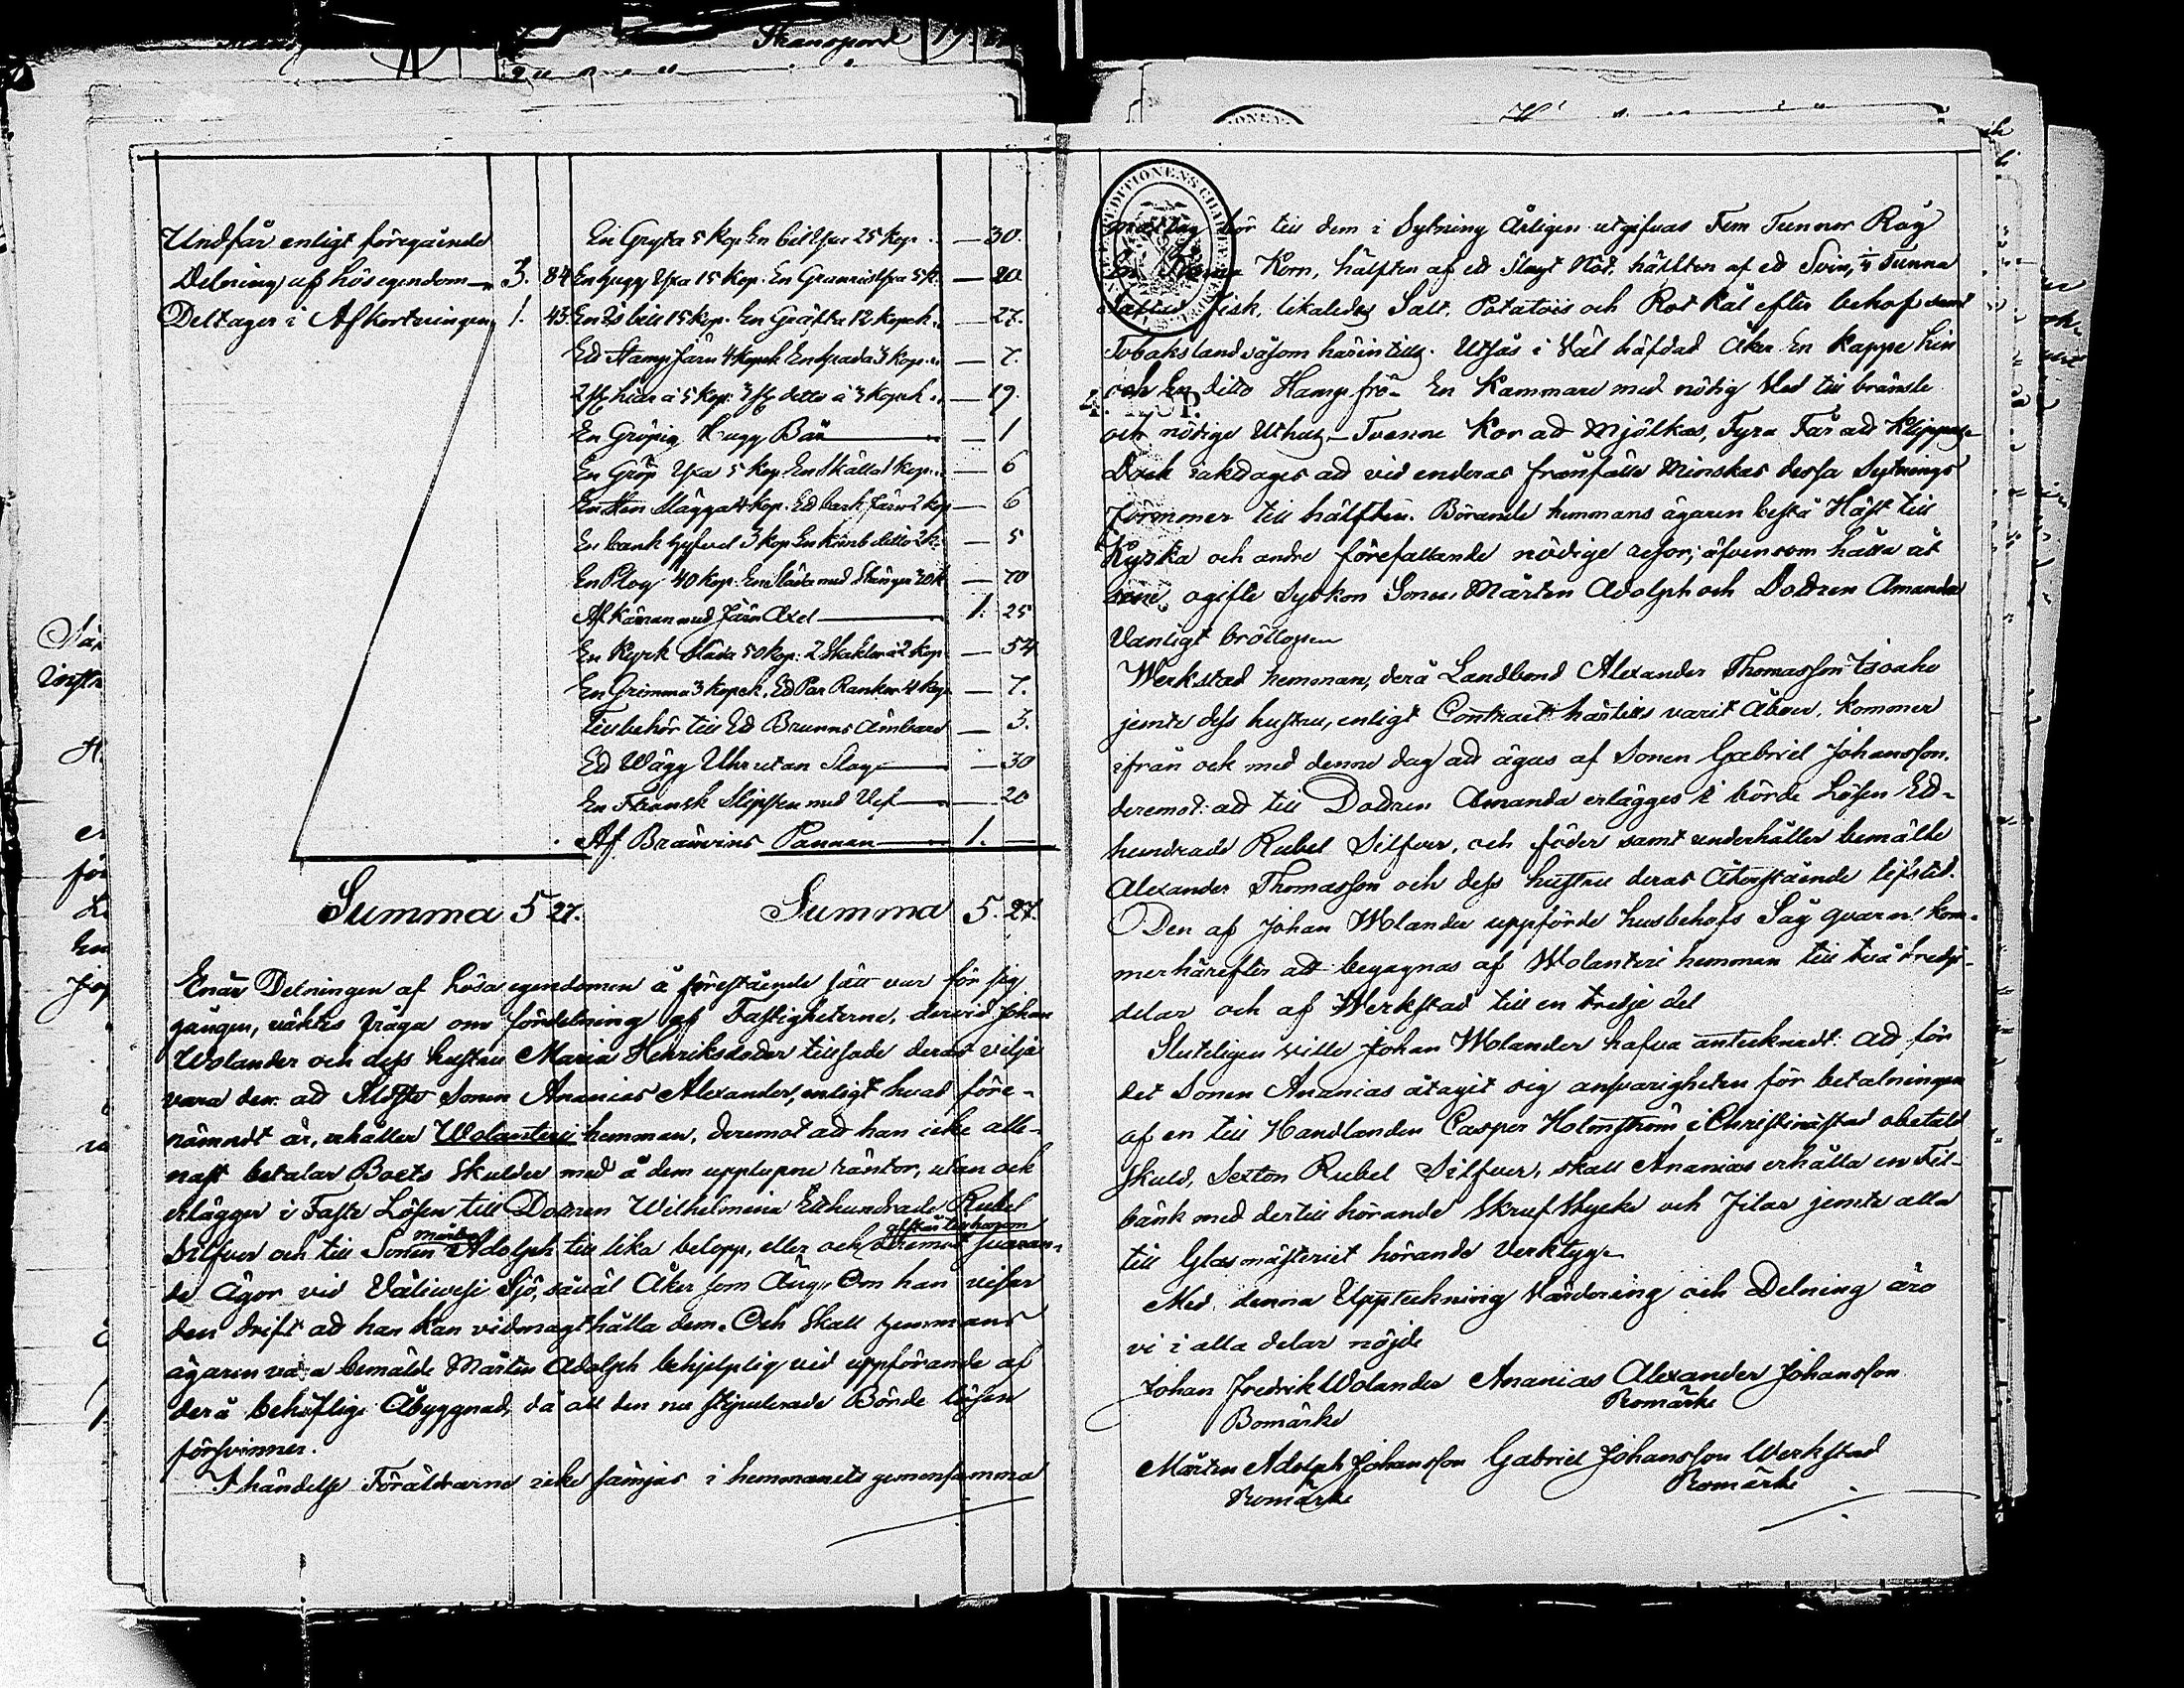 Transport 19
Undfår enligt föregående
Delning af lösegendom 3. 84
Deltager i Afkorteringen 1. 43
En Gryta 5 kop. En bil Yxa 25 kop. — 30.
En hugg Yxa 15 kop. En Granrisyxa 5 k. — 20
En Is bill 15 kop. En Gräfta 12 kopek. — 27.
Ed Stamp järn 4 kopek En spada 3 kop. — 7.
2 st. liear à 5 kop. 3 st. ditto à 3 kopek — 19.
En Gröpig hugg — 1
En Gröp Yxa 5 kop. En skälla 1 kop. — 6
En Sten Slägga 4 kop. Ed bark järn 2 kop — 6
En bank hyfvel 3 kop En Krimb ditto 2 k. — 5
En Plog 40 kop. En Släda med Stänger 30 k — 70
Af Kärran med Järn Axel 1. 25
En Kyrk Släda 50 kop. 2 Skaklor à 2 kop — 54
En Grimma 3 kopek. Ed Par Rankor 4 kop — 7.
Tillbehör till Ed Brunns ämbare — 3.
Ed Wägg Uhr utan Slag — 30
En Fransk Slipsten med Vef — 20
Af Brännvins Pannan 1. —
Summa 5 27. Summa 5. 27.
Enär Delningen af lösa egendomen å förestående sätt var för sig
gången, väktes fråga om fördelning af Fastigheterne, dervid Johan
Wolander och dess hustru Maria Henriksdoter tillsade deras vilje
vara den: ad Äldste Sonen Ananias Alexander, enligt hvad före-
nämndt är, erhåller Wolanteri hemman, deremot att han icke alle-
nast betalar Boets Skulder med å dem upplupne räntor, utan ock
erlägger i Faste Lösen till Dottren Wilhelmina Etthundrade Rubel
Silfver och till Sonen Mårten Adolph till lika belopp, eller och deremot svaran-
de Ägor vid Välivesi Sjö, såväl Åker som Äng, Om han visar
den drift ad han kan vidmagthålla dem. Och skall hemmans
ägaren vara bemälde Mårten Adolph behjelplig vid uppförande af
derå behöflige Åbyggnad, då all den nu stipulerade Börde lösen
försvinner.
I händelse Föräldrarne icke sämjas i hemmanets gemensamma
bör till dem i Sytning Årligen utgifvas Fem Tunnor Råg
Korn, hälften af ed Slagt Nöt, hälften af ed Svin, 1/4 Tunna
saltad Fisk, likaledes Salt, Potatois och Rot Kål efter behof samt
Tobaksland såsom härintills. Utsås i Väl häfdad Åker En Kappe Lin
och En ditto Hamp frö. En Kammare med nödig Ved till bränsle
4. KOP.
och nödige Uthus. Tvenne Kor ad Mjölkas, Fyra Får ad Klippas.
Dock iakttages ad vid enderas frånfälle Minskas dessa Sytnings
förmmer till hälften. Börande hemmans ägaren bestå Häst till
Kyrka och andre förefallande nödige resor; äfvensom hålla åt
sine ogifte Syskon Sonen Mårten Adolph och Dottren Amanda
Vanligt bröllopen
Werkstad hemman, derå Landbond Alexander Thomasson Isoaho
jemte dess hustru, enligt Contract härtills varit Åboer, kommer
ifrån och med denne dag ad ägas af Sonen Gabriel Johansson.
deremot: ad till Dottren Amanda erlägges i börde Lösen Ed-
hundrade Rubel Silfver, och föder samt underhåller bemälte
Alexander Thomasson och dess hustru deras Återstående lifstid.
Den af Johan Wolander uppförde husbehofs Såg qvarn kom-
mer härefter att begagnas af Wolanteri hemman till två tredje-
delar och af Werkstad till en tredje del
Sluteligen ville Johan Wolander hafva antecknadt: ad för
det Sonen Ananias åtagit sig ansvarigheten för betalningen
af en till Handlanden Casper Holmström i Christinæstad obetald
Skuld, Sexton Rubel Silfver, skall Ananias erhålla en Fil-
bänk med dertill hörande Skrufstycke och Filar jemte alla
till Glasmästeriet hörande Verktyg.
Med denna Uppteckning Värdering och Delning äro
vi i alla delar nöjde
Johan Fredrik Wolander Ananias Alexander Johansson
Bomärke Bomärke
Mårten Adolph Johansson Gabriel Johansson Werkstad
Bomärke Bomärke